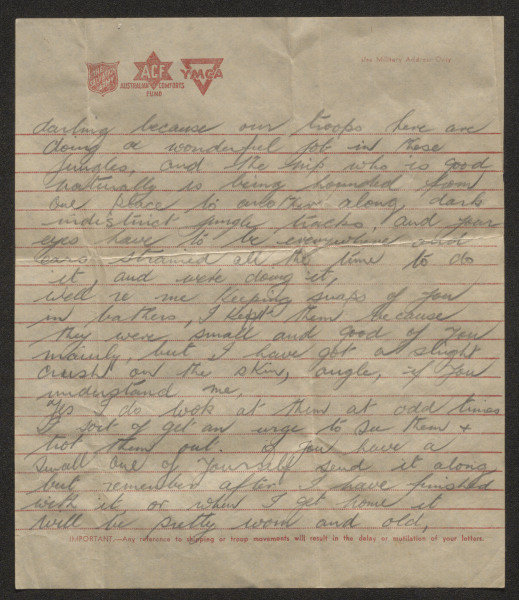 THE SALVATION ARMY
ACF
AUSTRALIAN COMFORTS FUND
YMCA
Use Military Address Only
darling because our troops here are
doing a wonderful job in these
jungles, and the nip who is good
naturally is being hounded from
one place to another along, dark
indistrict jungle tracks, and your
eyes have to be everywhere and
ears strained all the time to do
it, and we're doing it,
Well re me keeping snaps of you
in bathers, I kept them because
they were small and good of you
mainly, but I have got a slight
crush on the skin, angle, if you
understand me.
Yes I do look at them at odd times
I sort of get an urge to see them +
trot them out. If you have a
small one of yourself send it along
but remember after I have finished
with it, or when I get home it
will be pretty worn and old,
IMPORTANT.—Any reference to shipping or troop movements will result in the delay or mutilation of your letters.